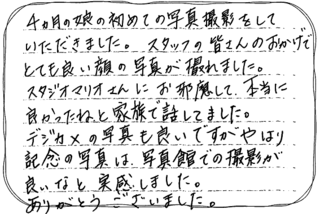 4ヵ月の娘の初めての写真撮影をして
いただきました。スタッフの皆さんのおかげで
とても良い顔の写真が撮れました。
スタジオマリオさんにお邪魔して、本当に
良かったねと家族で話してました。
デジカメの写真も良いですがやはり
記念の写真は、写真館での撮影が
良いなと実感しました。
ありがとうございました。